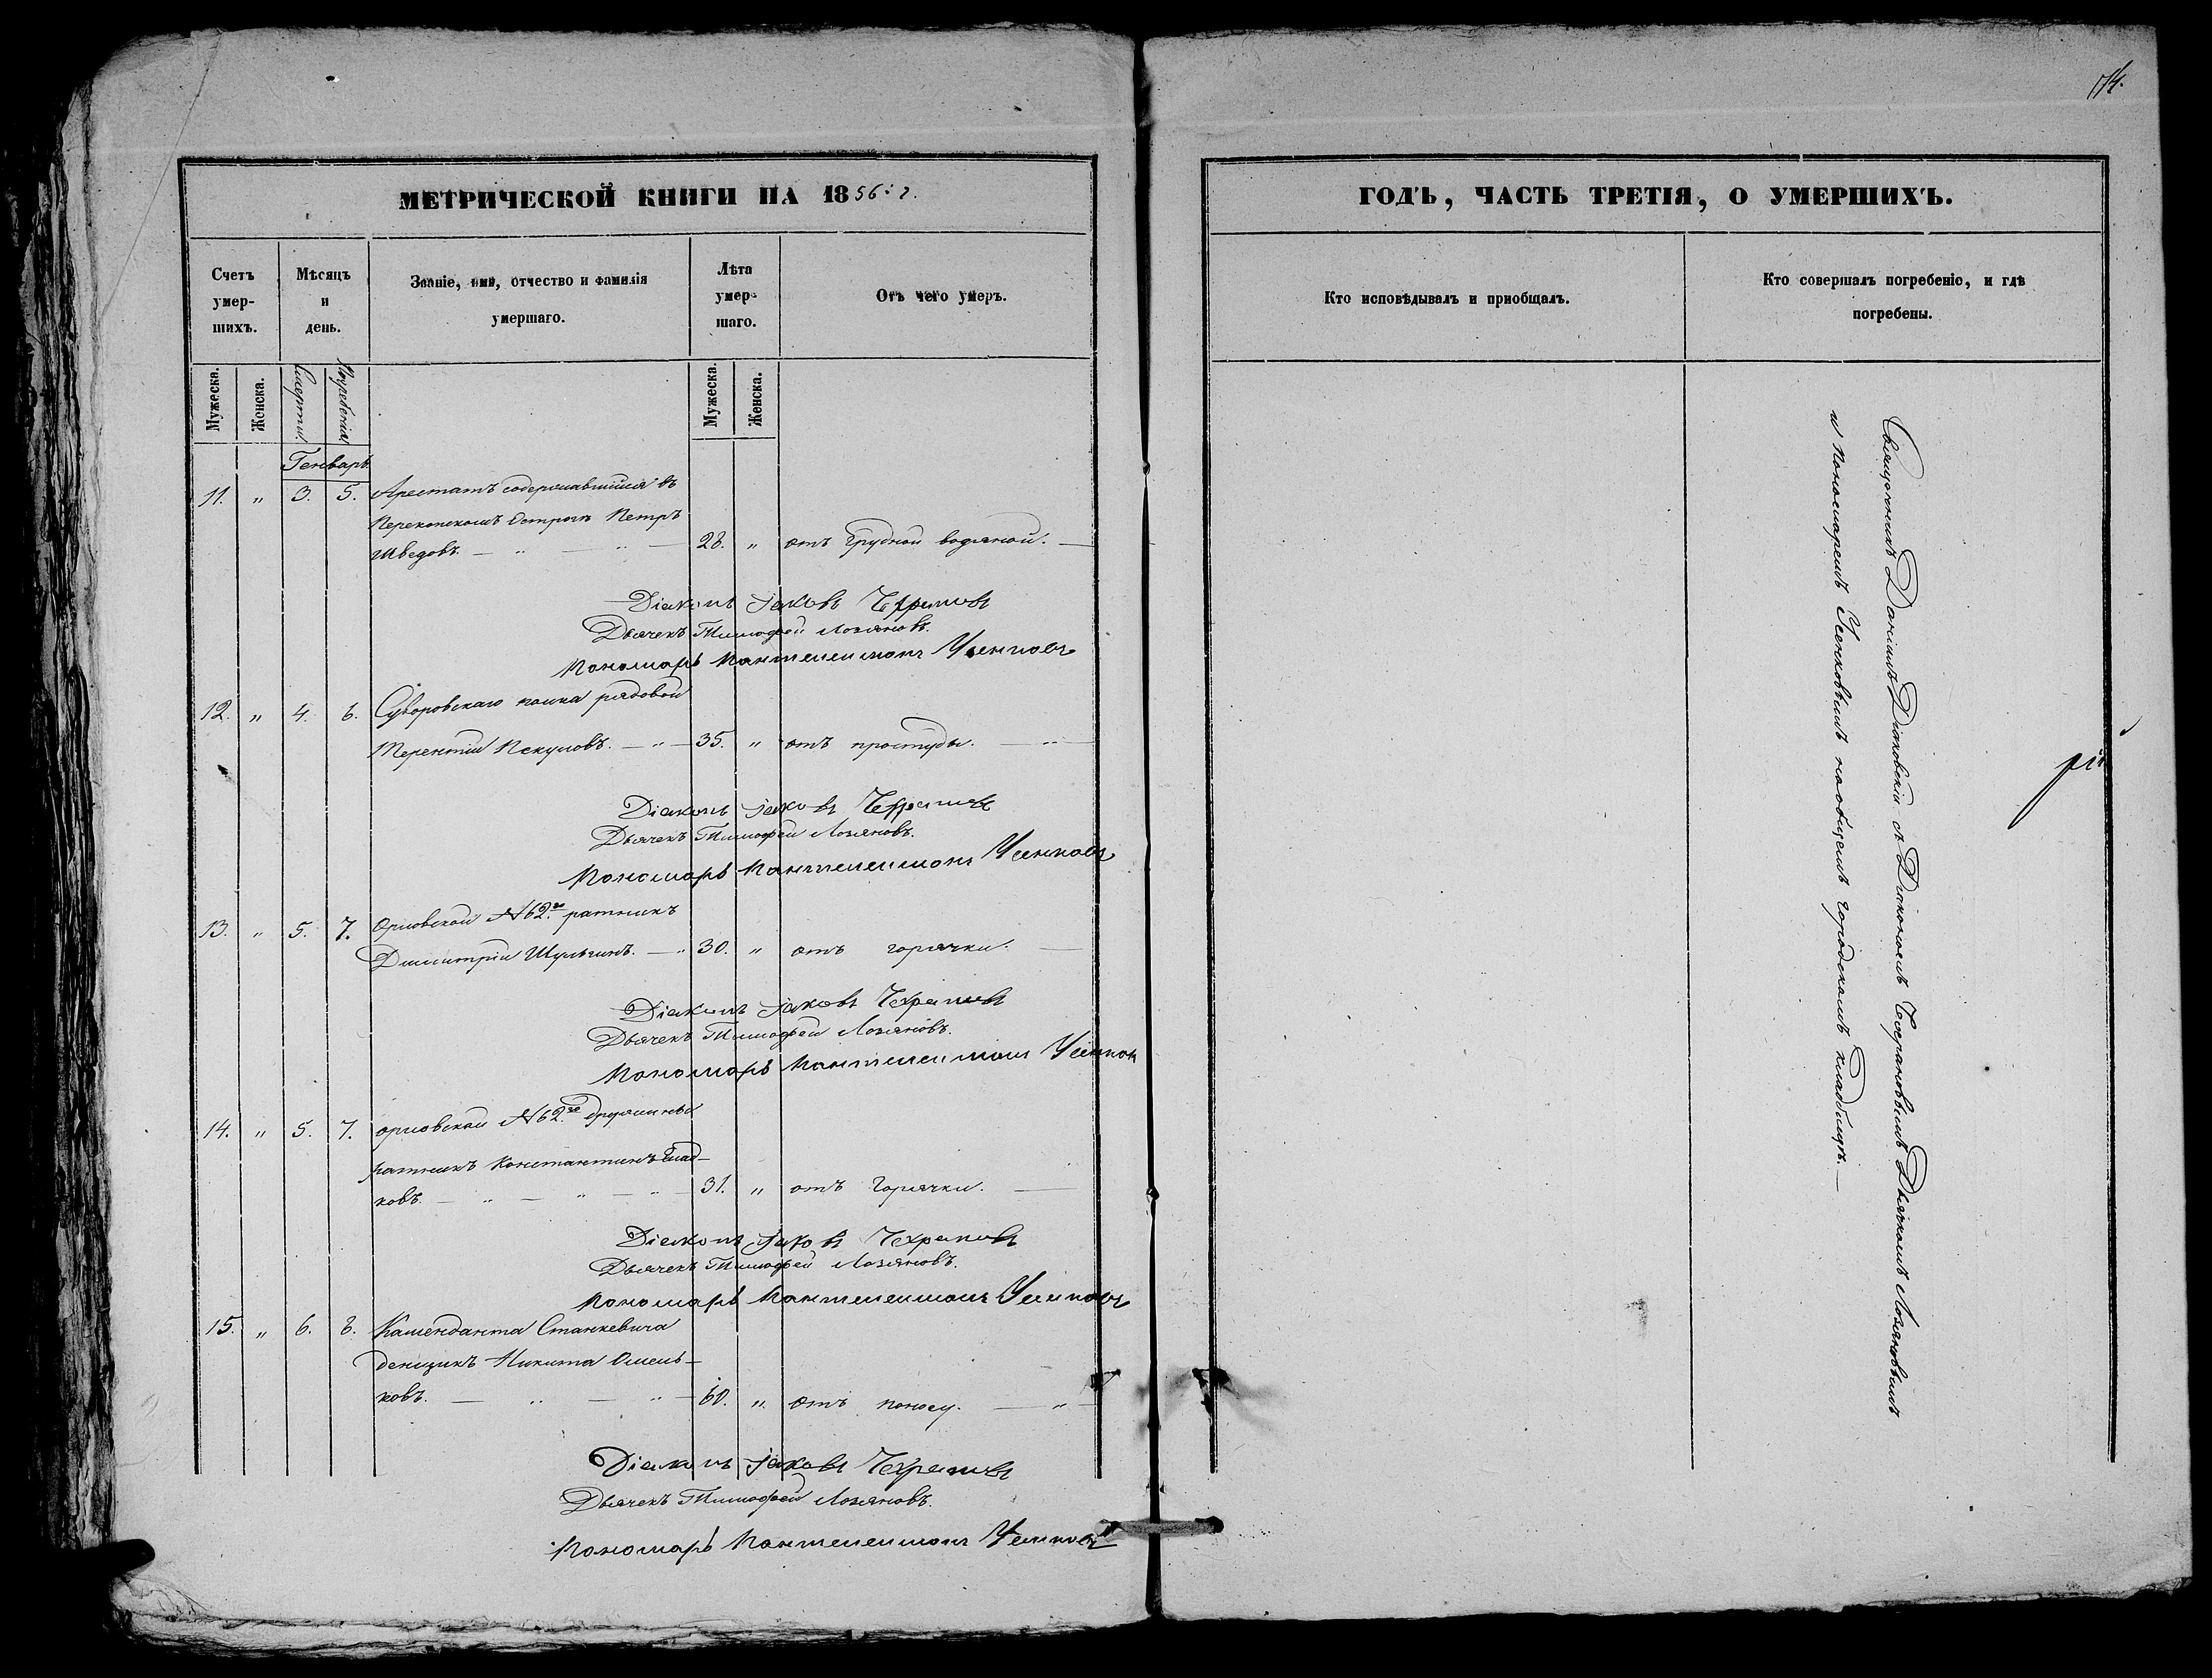 МЕТРИЧЕСКОЙ КНИГИ НА 1856: г.
Счетъ умер-шихъ.
Мѣсяцъ и день.
Званіе, имя, отчество и фамилія умершаго.
Лѣта умер-шаго.
Отъ чего умеръ.
Мужеска. Женска. Смерти. Погребенія Мужеска. Женска.
Генварь.
11. „ 3. 5. Арестатъ содержавшийся въ
Перекопскомъ Острогѣ Петръ
Шведовъ. — „ — „ — 28. „ отъ грудной водяной. —
Діаконъ Іаковъ
Дьячекъ Тимофей Лозяновъ.
Пономарь Пантелеимонъ Усенковъ
12. „ 4. 6. Суворовскаго полка рядовой
Терентій Пекуловъ. — „ — 35. „ отъ простуды. — „ —
Діаконъ Іаковъ
Дьячекъ Тимофей Лозяновъ.
Пономарь Пантелеимонъ Усенковъ
13. „ 5. 7. Орловской №62.й ратникъ
Димитрій Шульгинъ. — „ 30. „ отъ горячки. —
Діаконъ Іаковъ
Дьячекъ Тимофей Лозяновъ.
Пономарь Пантелеимонъ Усенков
14. „ 5. 7. орловской №62.й дружины
ратникъ Константинъ Глад-
ковъ. — „ — „ — „ — 31. „ отъ Горячки. —
Діаконъ Іаковъ
Дьячекъ Тимофей Лозяновъ.
Пономарь Пантелеимонъ Усенковъ
15. „ 6. 8. Каменданта Станкевича
денщикъ Никита Омель-
ковъ. — „ — „ — 60. „ отъ поносу. — „ —
Діаконъ Іаковъ
Дьячекъ Тимофей Лозяновъ.
Пономарь Пантелеимонъ Усенковъ
ГОДЪ, ЧАСТЬ ТРЕТІЯ, О УМЕРШИХЪ.
Кто исповѣдывалъ и приобщалъ.
Кто совершалъ погребеніе, и гдѣ
погребены.
Священникъ Даніилъ Діаковскій съ Діакономъ Дьячкомъ Лозяновымъ
и Пономаремъ Усенковымъ на общемъ городскомъ кладбищѣ. —